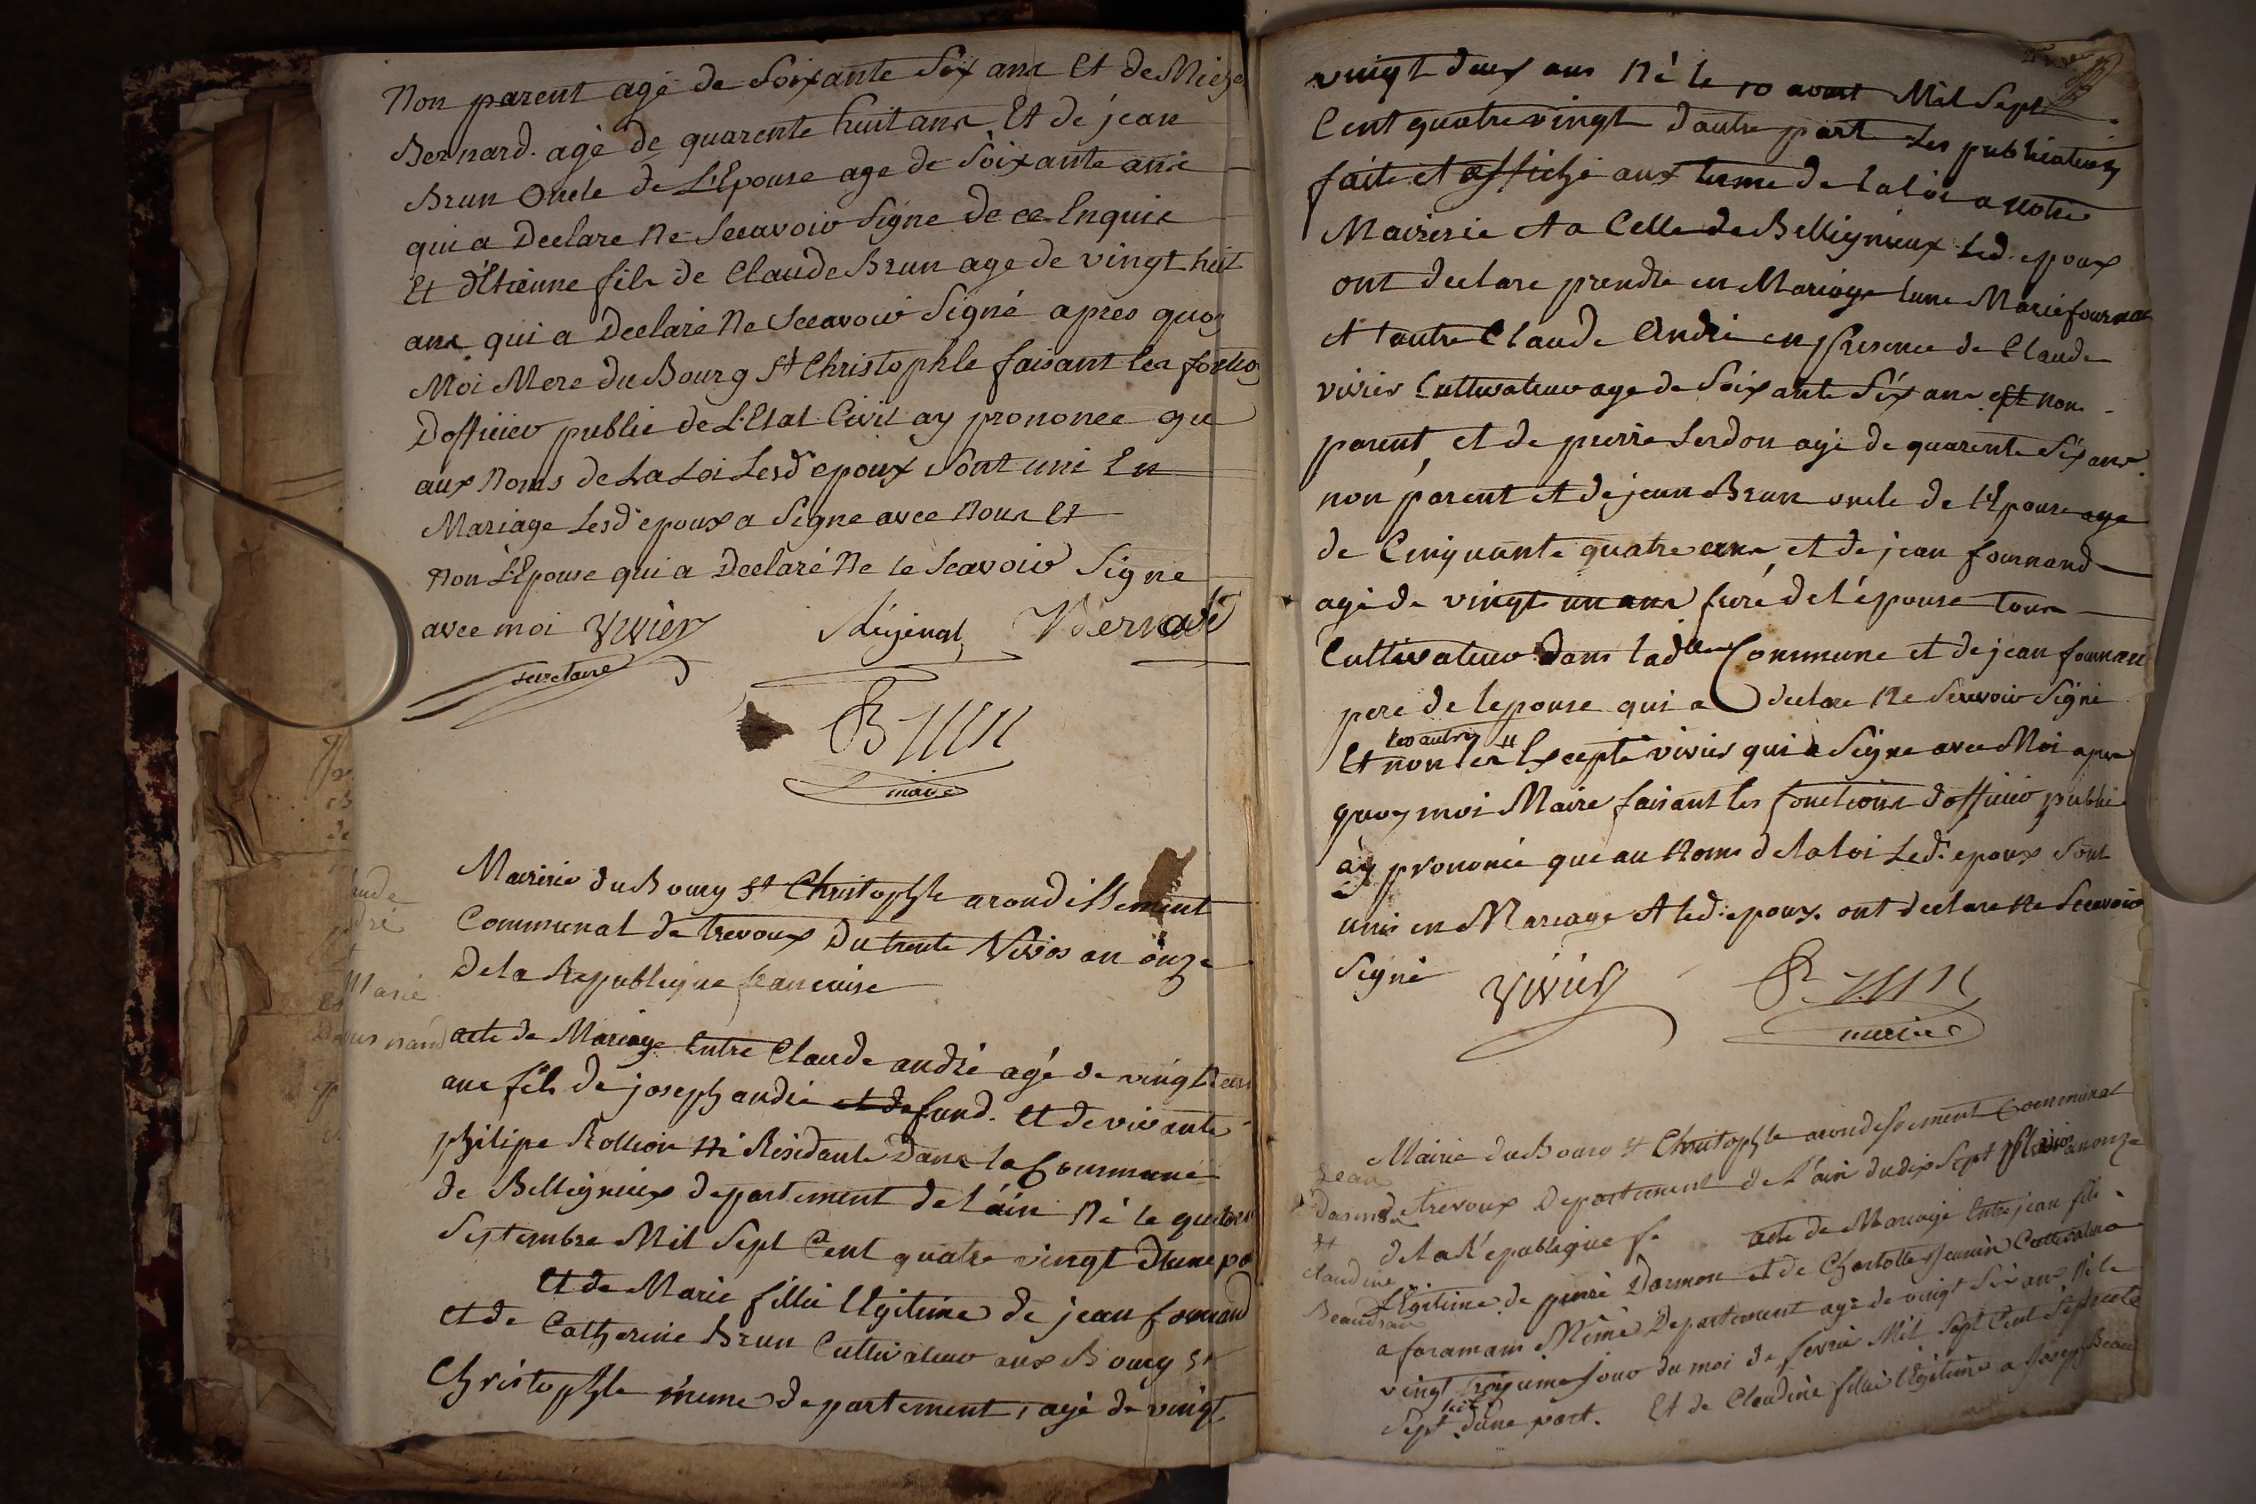 Non parent agé de Soixante Six ans Et de Miche
Bernard. agé de quarente huit ans Et de jean
Brun Oncle de L'Epouse age de Soixante ans
qui a Declare Ne Sccavoir Signe de ce Enquis
Et d'Etienne fils de Claude Brun age de vingt huit
ans qui a Declaré Ne Sccavoir Signé apres quoy
Moi Mere du Bourg St Christophle faisant les
Dofficier public de L'Etat Civil ay prononce que
aux Noms de La Loi Lesd epoux Sont uni En
Mariage Lesd epoux a Signe avec Nous Et
Non L'Epouse qui a Declaré Ne le Scavoir Signe
avec moi Vivier Bernard
secretaire
Brun
maire
Mairerie du Bourg St Christophle arondissement
Communal de trevoux Du trente Nivos an onze
De la Republique francaise
Marie
acte de Mariage Entre Claude andré agé de vingt deux
ans fils de joseph andré et de fund. Et de vivante
philipe Rollion Né Résidante Dans la Commune
de Belligneux departement de l'ain Né le
Septembre Mil Sept Cent quatre vingt Dune pa
Et de Marie fillie légitime de jean fornand
et de Catherine Brun Cultivateur aux Bourg St
Christophle meme departement, agé de vingt
vingt deux ans Né le 10 avout Mil Sept
Cent quatre vingt d'autre part Les publication
faite et affiché aux terme de la loi a notre
Mairerie et a Celle de Belligneux Led. epoux
ont declare prendre en Mariage lune Marie fournan
et l'autre Claude André en presence de Claude
vivier Cultivateur age de Soixante Six ans est non
parent, et de pierre Lerdon agé de quarente Six ans
non parent et de jean Brun oncle de l'Epouse age
de Cinquante quatre ans, et de jean fournand
agé de vingt un ans freré de l'épouse tous
Cultivateur Dans lad Commune et de jean fournan
pere de lepouse qui a declare Ne Scavoir Signé
les autres
Et non les Excepté vivier qui a Signe avec Moi apres
quoy moi Maire faisant les fonctions d'officier public
ay prononcé que au Noms de la loi Led. epoux Sont
unis en Mareage et led. epoux. ont declare ne Sccavoir
Signé Vivier Brun
maire
Mairie du Bourg St Christophle arondessement Communal
Jean
de trevoux Departement de l'ain du dix Sept an onze
et
de la République fe acte de Mariage Entre jean fils
Claudine
légitime de pierre Darmon et de Charlotte Cultivateur
Beaudran
a faramans Même Departement age de vingt Six ans Né le
vingt troisieme Jour du moi de fevrié Mil Sept Cent Septente
Sept Dune part. Et de Claudine fillie légitime a Joseph Beau